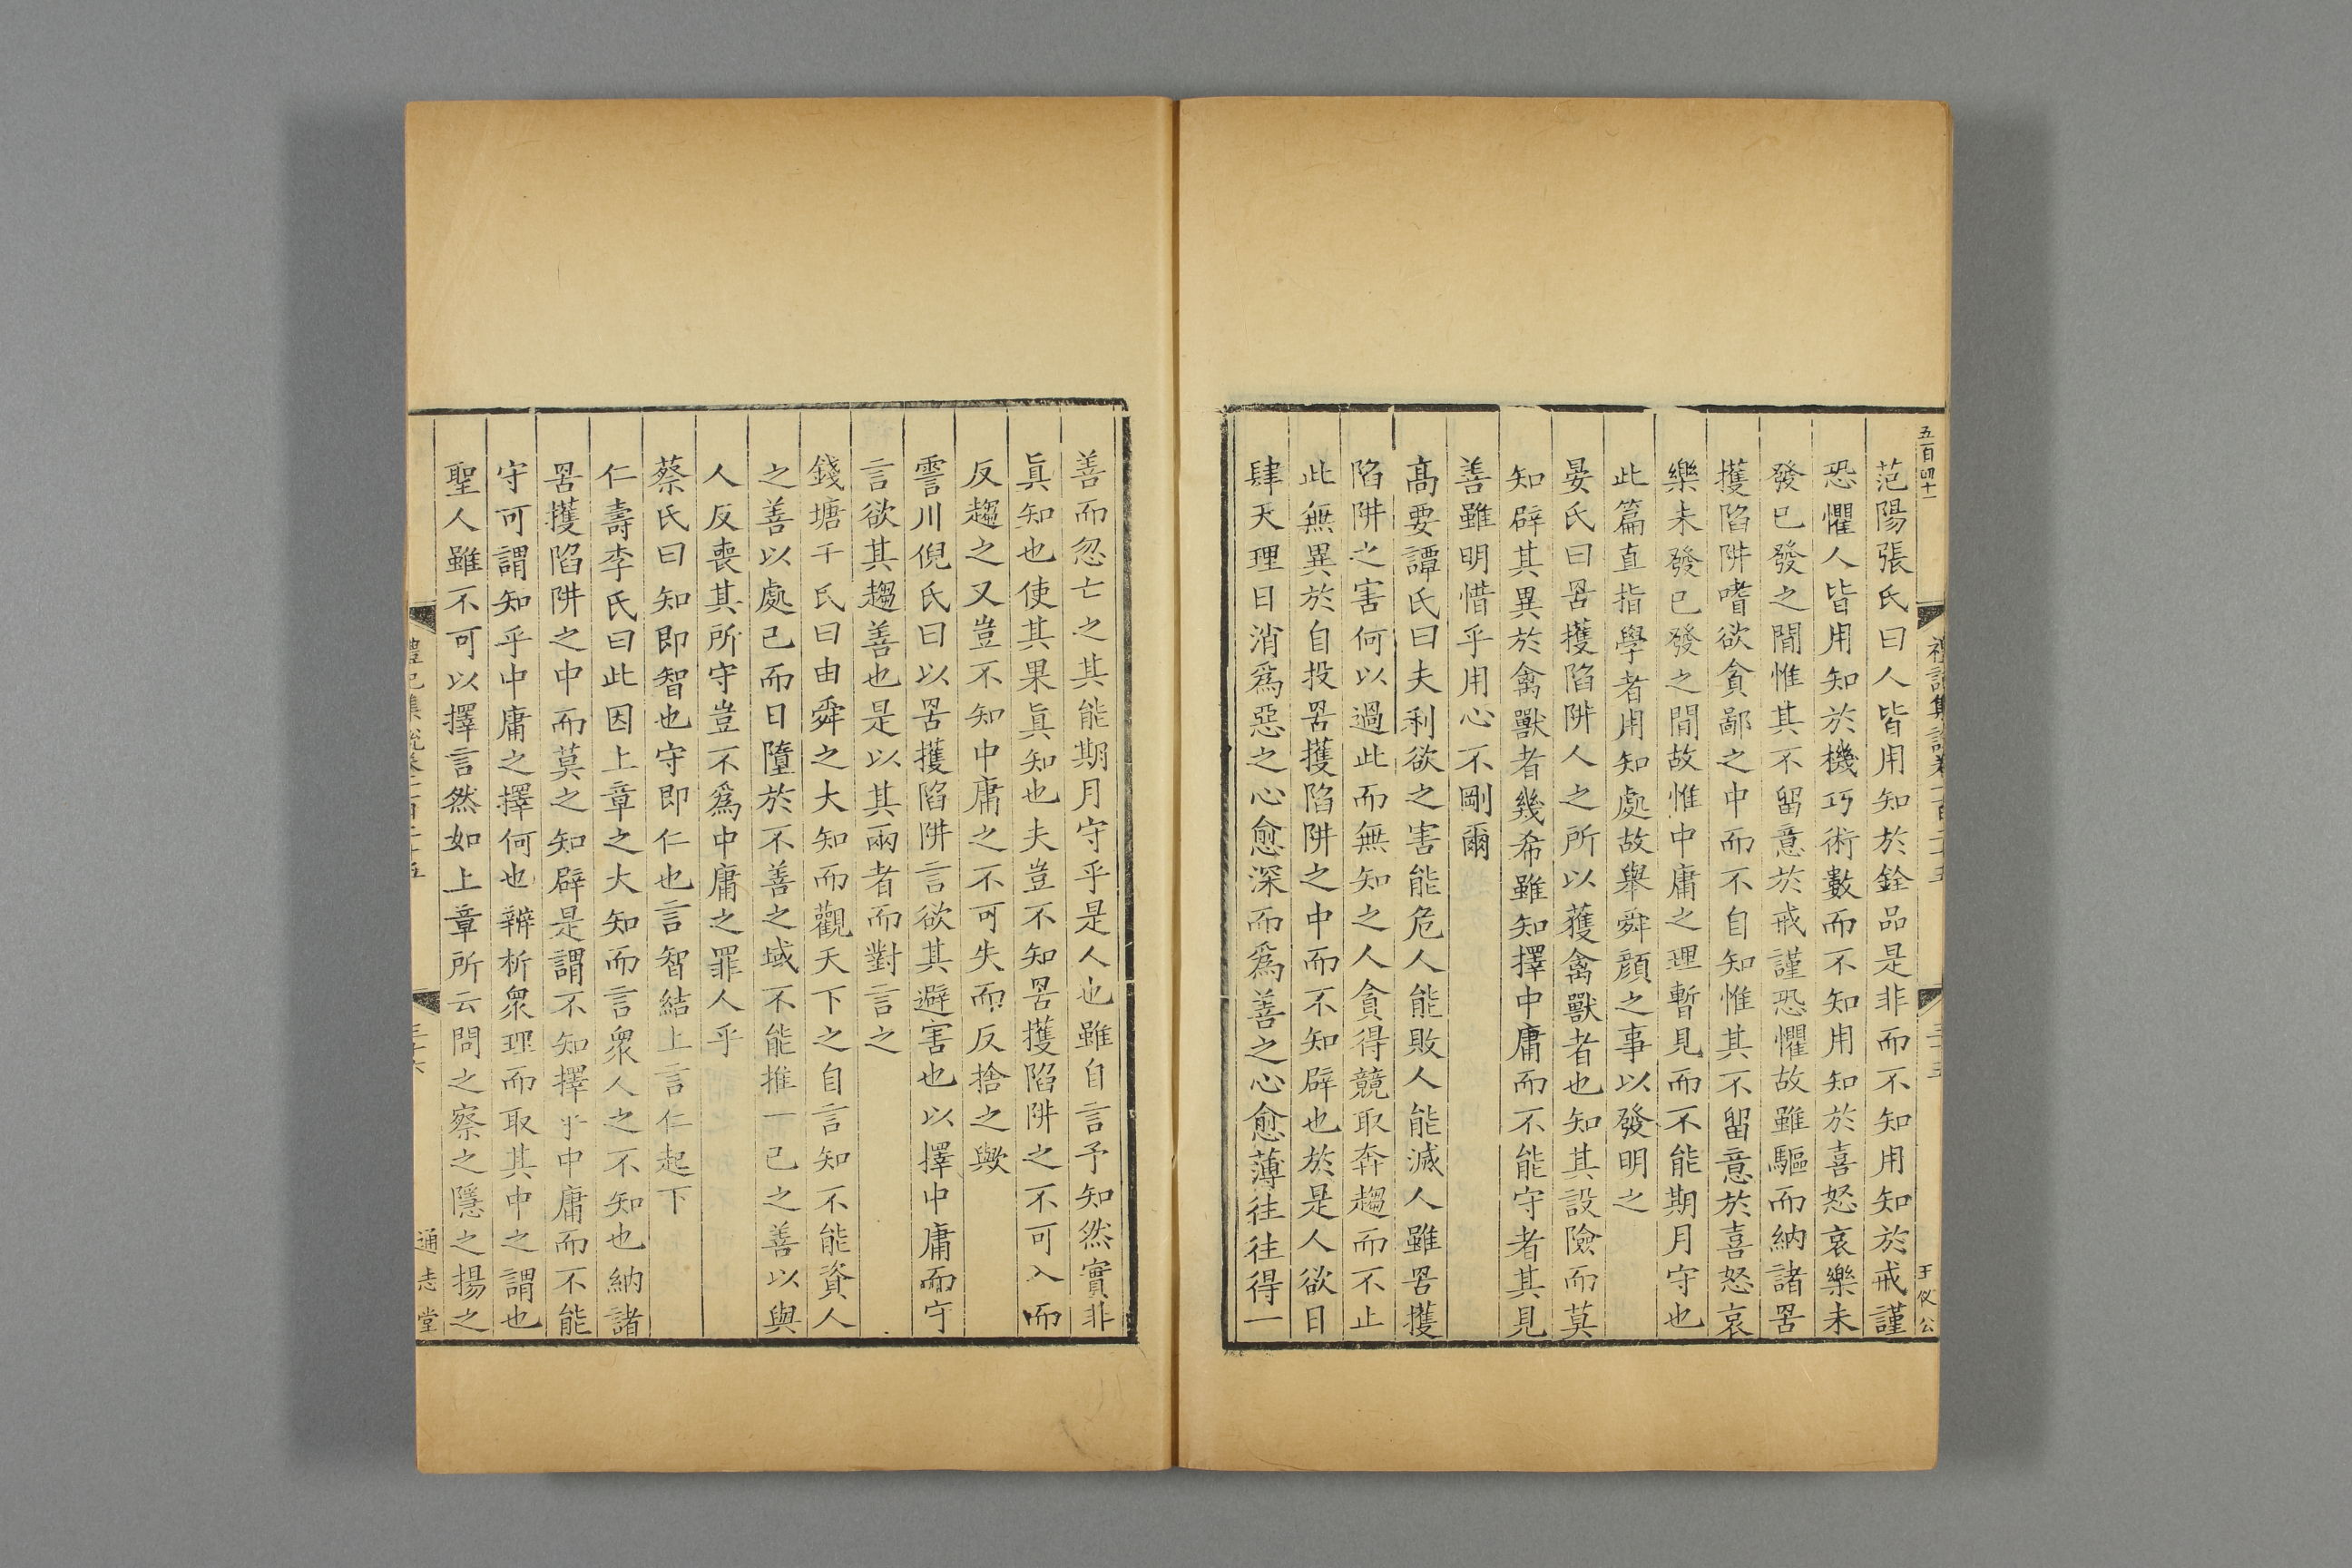 五百四十一
禮記集說卷一百二十五
三十五
王攸公
范陽張氏曰人皆用知於銓品是非而不知用知於戒謹
恐懼人皆用知於機巧術數而不知用知於喜怒哀樂未
發已發之閒惟其不留意於戒謹恐懼故雖驅而納諸罟
擭陷阱嗜欲貪鄙之中而不自知惟其不留意於喜怒哀
樂未發已發之閒故惟中庸之理暫見而不能期月守也
此篇直指學者用知處故舉舜顔之事以發明之
晏氏曰罟擭陷阱人之所以獲禽獸者也知其設險而莫
知辟其異於禽獸者幾希雖知擇中庸而不能守者其見
善雖明惜乎用心不剛爾
高要譚氏曰夫利欲之害能危人能敗人能滅人雖罟擭
陷阱之害何以過此而無知之人貪得競取奔趨而不止
此無異於自投罟擭陷阱之中而不知辟也於是人欲日
肆天理日消爲惡之心愈深而爲善之心愈薄往往得一
善而忽亡之其能期月守乎是人也雖自言予知然實非
眞知也使其果眞知也夫豈不知罟擭陷阱之不可入而
反趨之又豈不知中庸之不可失而反捨之與
霅川倪氏曰以罟擭陷阱言欲其避害也以擇中庸而守
言欲其趨善也是以其兩者而對言之
錢塘于氏曰由舜之大知而觀天下之自言知不能資人
之善以處己而日墮於不善之域不能推一己之善以與
人反喪其所守豈不爲中庸之罪人乎
蔡氏曰知即智也守即仁也言智結上言仁起下
仁壽李氏曰此因上章之大知而言衆人之不知也納諸
罟擭陷阱之中而莫之知辟是謂不知擇乎中庸而不能
守可謂知乎中庸之擇何也辨析衆理而取其中之謂也
聖人雖不可以擇言然如上章所云問之察之隱之揚之
禮記集說卷一百二十五
三十六
通志堂